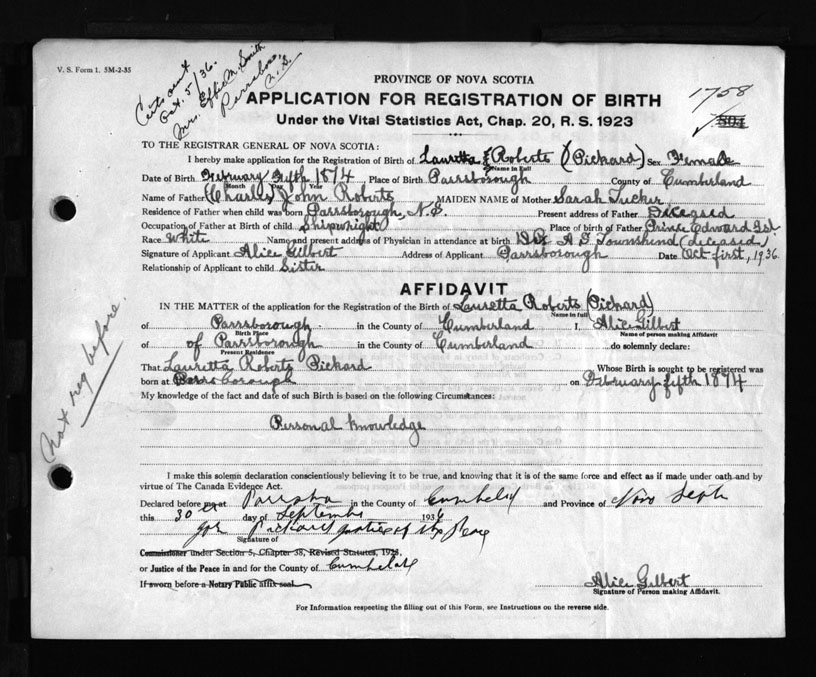 V. S. Form 1. 5M-2-35
Certs sent
Oct. 5/36.
Mrs. Effie M. Smith
Parrsboro,
N.S.
PROVINCE OF NOVA SCOTIA
1758
APPLICATION FOR REGISTRATION OF BIRTH
Under the Vital Statistics Act, Chap. 20, R. S. 1923
TO THE REGISTRAR GENERAL OF NOVA SCOTIA:
I hereby make application for the Registration of Birth of Lauretta Roberts (Pickard) Sex Female
Name in Full
Date of Birth February Fifth 1874 Place of Birth Parrsborough County of Cumberland
Month Day Year
Name of Father (Charles) John Roberts MAIDEN NAME of Mother Sarah Tucker
Residence of Father when child was born Parrsborough, N.S. Present address of Father Deceased
Occupation of Father at Birth of child Shipwright Place of birth of Father Prince Edward Isl.
Race White Name and present address of Physician in attendance at birth Dr. A.D. Townshend (deceased)
Signature of Applicant Alice Gilbert Address of Applicant Parrsborough Date Oct first, 1936
Relationship of Applicant to child Sister
AFFIDAVIT
IN THE MATTER of the application for the Registration of the Birth of Lauretta Roberts (Pickard)
Name in full
of Parrsborough in the County of Cumberland I, Alice Gilbert
Birth Place Name of person making Affidavit
of of Parrsborough in the County of Cumberland do solemnly declare:
Present Residence
That Lauretta Roberts Pickard Whose Birth is sought to be registered was
born at Parrsborough on February fifth 1874
My knowledge of the fact and date of such Birth is based on the following Circumstances:
Personal knowledge
Not reg before.
I make this solemn declaration conscientiously believing it to be true, and knowing that it is of the same force and effect as if made under oath and by
virtue of The Canada Evidence Act.
Declared before me at Parrsboro in the County of Cumberland and Province of Nova Scotia
this 30 day of September 1936
Pickard Justice of the Peace
Signature of
Commissioner under Section 5, Chapter 38, Revised Statutes, 1923,
or Justice of the Peace in and for the County of Cumberland
If sworn before a Notary Public affix seal
Alice Gilbert
Signature of Person making Affidavit.
For Information respecting the filling out of this Form, see Instructions on the reverse side.